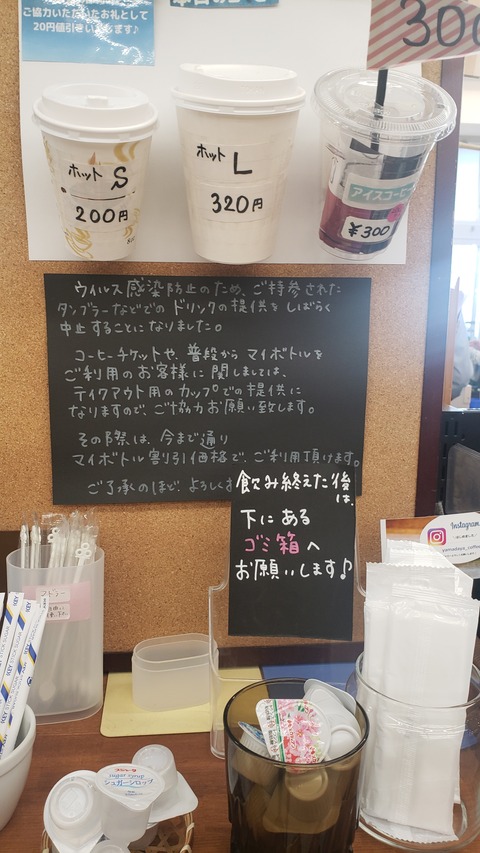 ご協力いただいたお礼として
20円値引きいたします♪
300
ホット S
200円
ホット L
320円
アイスコーヒー
¥300
ウイルス感染防止のため、ご持参された
タンブラーなどでの ドリンクの提供をしばらく
中止することになりました。
コーヒーチケットや、普段から マイボトルを
ご利用のお客様に関しましては、
テイクアウト用のカップでの提供に
なりますので、ご協力お願い致します。
その際は、今まで通り
マイボトル割引価格で、ご利用頂けます。
ご了承のほど、よろしくお
飲み終えた後は、
下にある
ゴミ箱へ
お願いします♪
Instagram
ストロー
STICK SUGAR
sugar syrup
シュガーシロップ